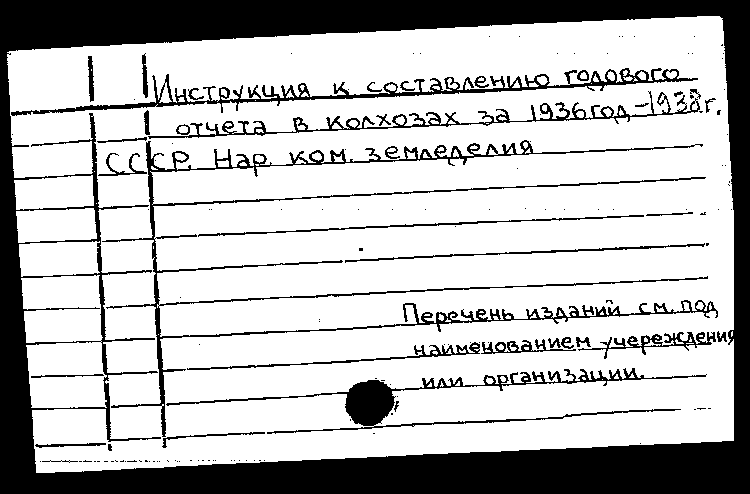 Инструкция к составлению годового
отчета в колхозах за 1936 год-1938 г.
СССР. Нар. ком. земледелия
Перечень изданий см. под
наименованием учереждения
или организации.